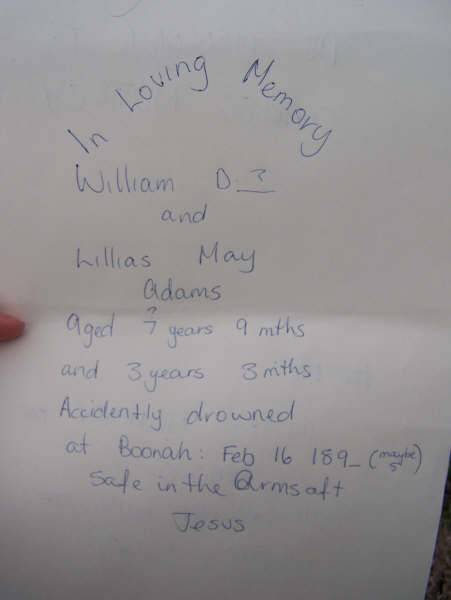 In Loving Memory
William D ?
and
Lillias May
Adams
?
Aged 7 years 9 mths
and 3 years 3 mths
Accidently drowned
at Boonah: Feb 16 189_ (maybe 5)
Safe in the Arms aft
Jesus